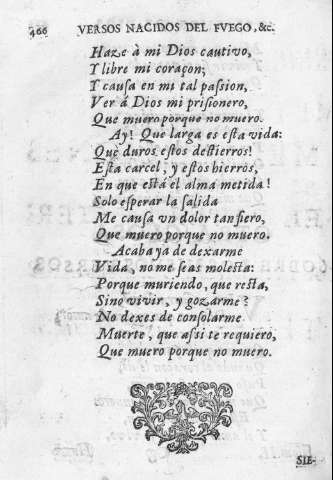 466 VERSOS NACIDOS DEL FVEGO, &c.
Haze à mi Dios cautivo,
Y libre mi coraçon;
Y causa en mi tal passion,
Ver á Dios mi prisionero,
Que muero porque no muero.
Ay! Que larga es esta vida:
Què duros estos destierros!
Esta carcel, y estos hierros,
En que està el alma metida!
Solo esperar la salida
Me causa vn dolor tan fiero,
Que muero porque no muero.
Acaba ya de dexarme
Vida, no me seas molesta:
Porque muriendo, que resta,
Sino vivir, y gozarme?
No dexes de consolarme
Muerte, que assi te requiero,
Que muero porque no muero.
SIE-